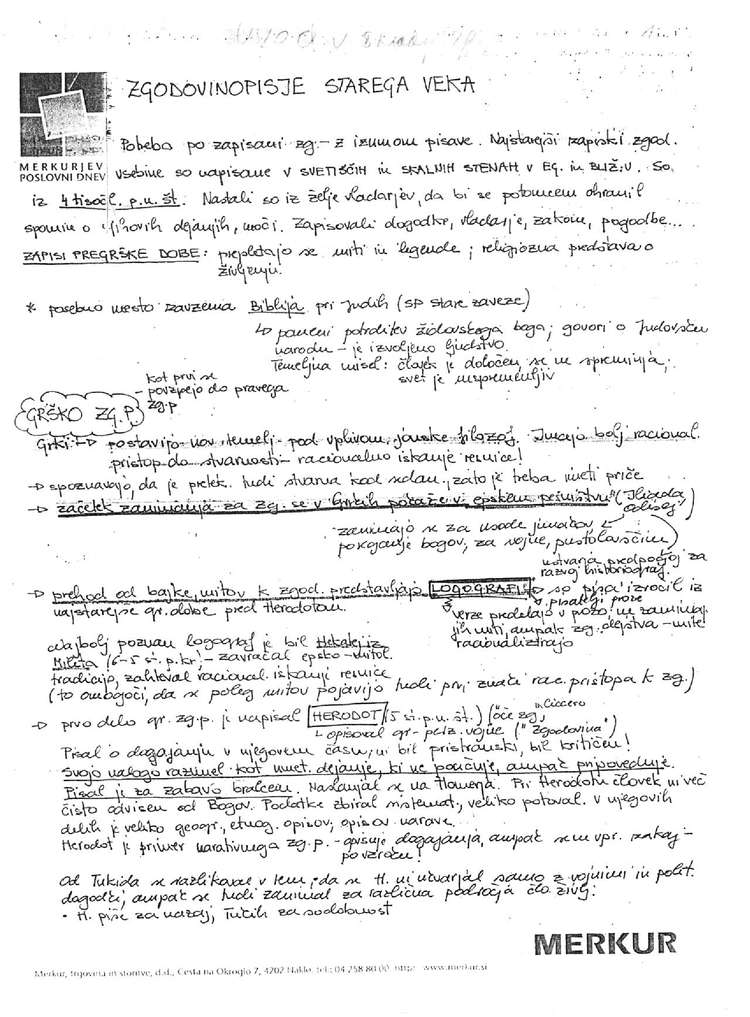 ZGODOVINOPISJE STAREGA VEKA
MERKURJEV
POSLOVNI DNEV
Potreba po zapisani zg. - z izumom pisave. Najstarejši zapiski zgod.
vsebine so napisane v SVETIŠČIH in SKALNIH STENAH v EG. in BLIŽ.V. So
iz 4 tisočl. p.n.št. Nastali so iz želje vladarjev, da bi se potomcem ohranil
spomin o njihovih dejanjih, moči. Zapisovali dogodke, vladarje, zakone, pogodbe...
ZAPISI PREGRŠKE DOBE: prepletajo se miti in legende; religiozna predstava o
življenju.
* posebno mesto zavzema Biblija pri Judih (sp stare zaveze)
↳ pomeni potrditev židovskega boga; govori o Judovskem
narodu - je izvoljeno ljudstvo.
Temeljna misel: človek je določen, se ne spreminja;
svet je nespremenljiv
kot prvi se
- povzpejo do pravega
zg.p
GRŠKO ZG.P.
Grki: → postavijo nov temelj - pod vplivom jonske filozof. Imajo bolj racional.
pristop do stvarnosti - racionalno iskanje resnice!
→ spoznavajo, da je pretek. tudi stvarna kod sedan., zato je treba imeti priče
→ začetek zanimanja za zg. se v Grkih pokaže v epskem pesništvu (Iliada,
Odisej)
zanimajo se za usode junakov
poreganje bogov, za vojne, pustolovščine
ustvarja predpogoj za
razvoj historiograf.
→ prehod od bajke, mitov k zgod. predstavljajo LOGOGRAFI - so pisa izročil iz
najstarejše gr. dobe pred Herodotom.
pisatelji proze
verze predelajo v pozo, ne zanimaj.
jih miti, ampak zg. dejstva - mite
racionalizirajo
Najbolj poznan logograf je bil Hekatej iz
Mileta (6-5 st. p.kr) - zavračal epsko-mitol.
tradicijo, zahteval racional. iskanje resnice
(to omogoči, da se poleg mitov pojavijo tudi prvi znaki rac. pristopa k zg.)
→ prvo delo gr. zg.p. je napisal HERODOT (5 st. p.n.št.) ("oče zg." Cicero
↳ opisoval gr-perz. vojne ("Zgodovina")
Pisal o dogajanju v njegovem času, ni bil pristranski, bil kritičen!
Svojo nalogo razumel kot umet. dejanje, ki ne poučuje, ampak pripoveduje.
Pisal je za zabavo bralcem. Naslanjal se na Homerja. Pri Herodotu človek ni več
čisto odvisen od Bogov. Podatke zbiral sistemat., veliko potoval. V njegovih
delih je veliko geogr., etnog. opisov, opisov narave.
Herodot je primer narativnega zg.p. - opisuje dogajanja, ampak se ne vpr. zakaj -
po vzroku!
Od Tukida se razlikoval v tem, da se H. ni ukvarjal samo z vojnimi in polit.
dogodki, ampak se tudi zanimal za različna področja člo. življ.
• H. piše za nazaj, Tukid. za sodobnost
MERKUR
Merkur, trgovina in storitve, d.d., Cesta na Okroglo 7, 4202 Naklo, tel.: 04 258 80 00, http: www.merkur.si